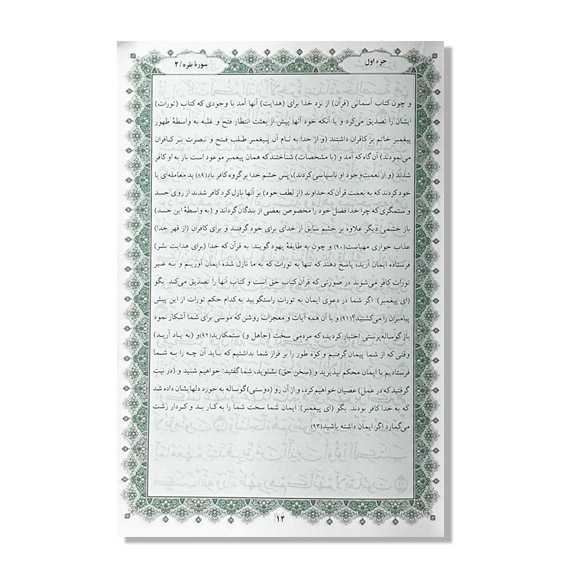 جزء اول
سورهٔ بقره / ۲
و چون کتاب آسمانی (قرآن) از نزد خدا برای (هدایت) آنها آمد با وجودی که کتاب (تورات)
ایشان را تصدیق می‌کرد و با آنکه خود آنها پیش از بعثت انتظار فتح و غلبه به واسطهٔ ظهور
پیغمبر خاتم بر کافران داشتند (و از خدا به نام آن پیغمبر طلب فتح و نصرت بر کافران
می‌نمودند) آن گاه که آمد و (با مشخصات) شناختند که همان پیغمبر موعود است باز به او کافر
شدند (و از نعمت وجود او ناسپاسی کردند)، پس خشم خدا بر گروه کافر باد(۸۹) بد معامله‌ای با
خود کردند که به نعمت قرآن که خداوند (از لطف خود) بر آنها نازل کرد کافر شدند از روی حسد
و ستمگری که چرا خدا فضل خود را مخصوص بعضی از بندگان گرداند و (به واسطهٔ این حسد)
باز خشمی دیگر علاوه بر خشم سابق از خدای برای خود گرفتند و برای کافران (از قهر خدا)
عذاب خواری مهیاست(۹۰) و چون به طایفهٔ یهود گویند: به قرآن که خدا (برای هدایت بشر)
فرستاده ایمان آرید، پاسخ دهند که تنها به تورات که به ما نازل شده ایمان آوریم و به غیر
تورات کافر می‌شوند در صورتی که قرآن کتاب حق است و کتاب آنها را تصدیق می‌کند. بگو
(ای پیغمبر): اگر شما در دعوی ایمان به تورات راستگویید به کدام حکم تورات از این پیش
پیامبران را می‌کشتید؟(۹۱) و با آن همه آیات و معجزات روشن که موسی برای شما آشکار نمود
باز گوساله پرستی اختیار کردید که مردمی سخت (جاهل و) ستمکارید(۹۲)و (به یاد آرید)
وقتی که از شما پیمان گرفتیم و کوه طور را بر فراز شما بداشتیم که باید آن چه را به شما
فرستادیم با ایمان محکم بپذیرید و (سخن حق) بشنوید، شما گفتید: خواهیم شنید و (در نیت
گرفتید که در عمل) عصیان خواهیم کرد، و از آن رو (دوستی) گوساله به خورد دلهایشان داده شد
که به خدا کافر بودند. بگو (ای پیغمبر): ایمان شما سخت شما را به کار بد و کردار زشت
می‌گمارد اگر ایمان داشته باشید(۹۳)
۱۲